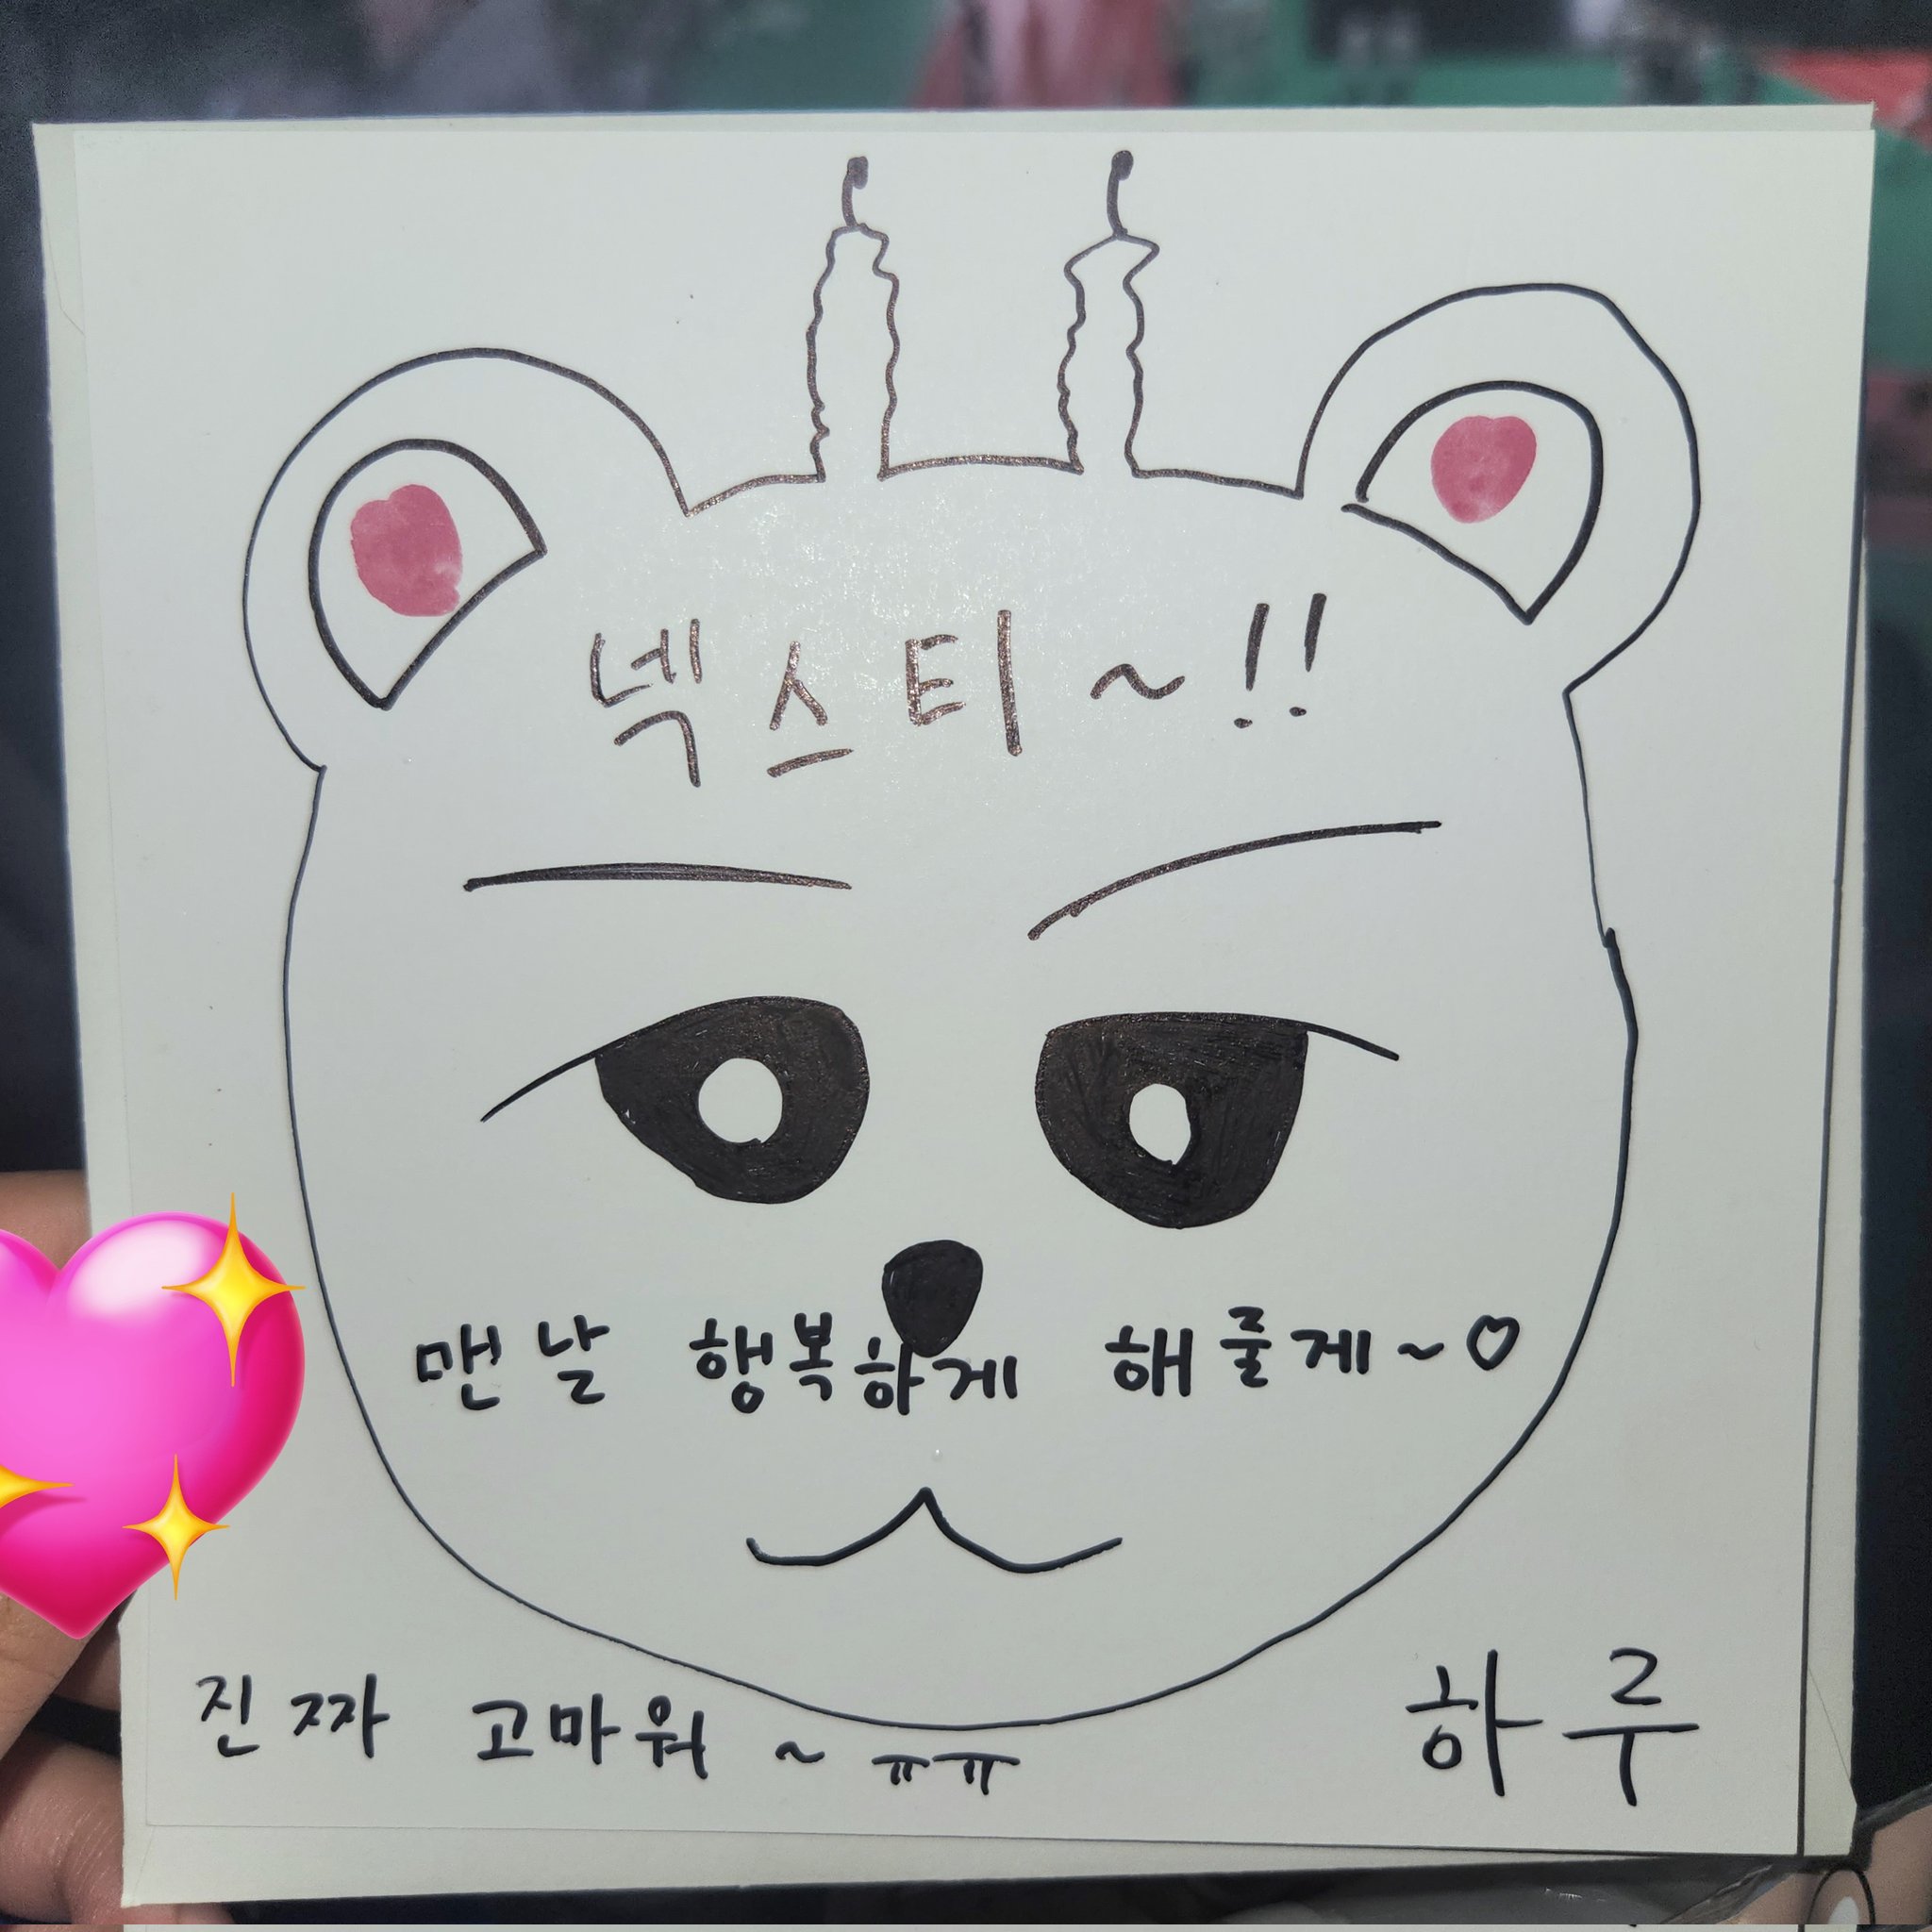 넥스티~!!
맨날 행복하게 해줄게~♡
진짜 고마워~ㅠㅠ
하루